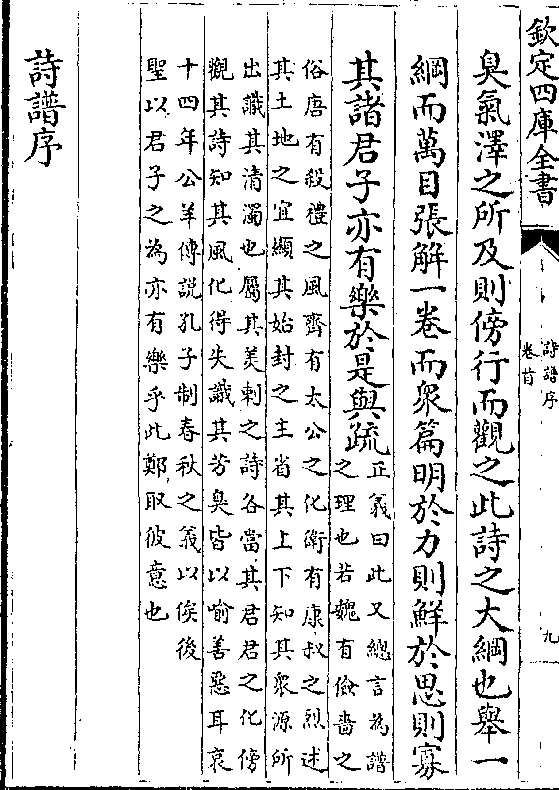 欽定四庫全書
詩譜序
卷首
九
臭氣澤之所及則傍行而觀之此詩之大綱也舉一
綱而萬目張解一卷而衆篇明於力則鮮於思則寡
其諸君子亦有樂於是與疏
正義曰此又總言為譜
之理也若魏有儉嗇之
俗唐有殺禮之風齊有太公之化衛有康叔之烈述
其土地之宜顯其始封之主省其上下知其衆源所
出識其清濁也屬其美刺之詩各當其君君之化傍
觀其詩知其風化得失識其芳臭皆以喻善惡耳哀
十四年公羊傳說孔子制春秋之義以俟後
聖以君子之為亦有樂乎此鄭取彼意也
詩譜序